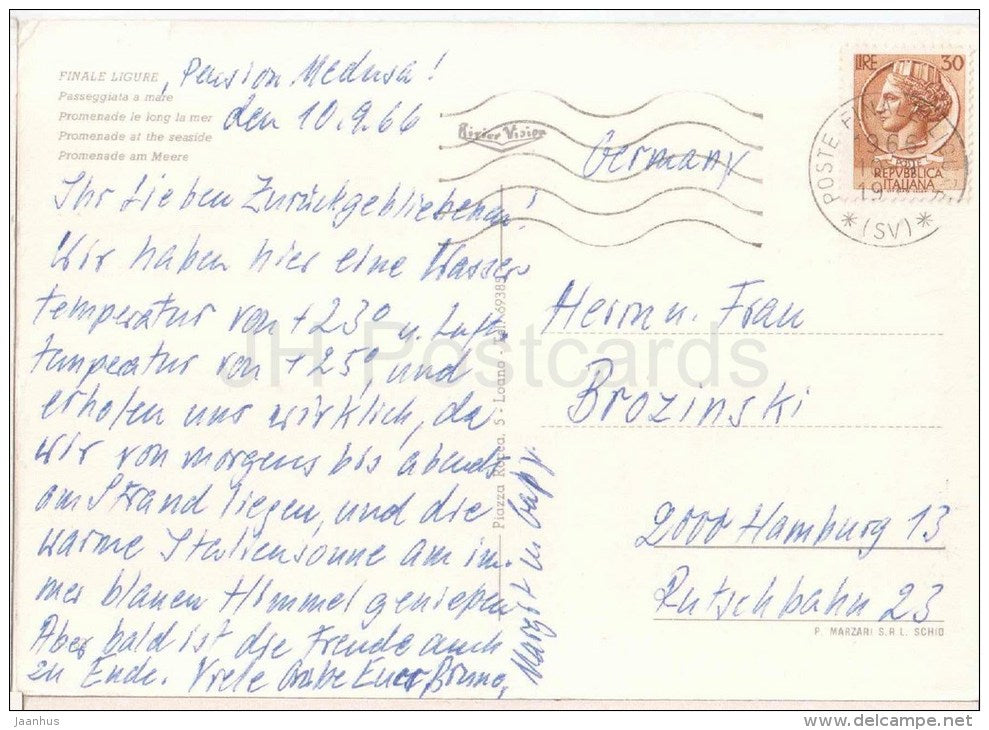 FINALE LIGURE
Passeggiata a mare
Promenade le long la mer
Promenade at the seaside
Promenade am Meere
Pension Medusa!
den 10.9.66
Ihr Lieben Zurückgebliebenen!
Wir haben hier eine Wasser
temperatur von +23° u. Luft
temperatur von +25°, und
erholen uns wirklich, da
wir von morgens bis abends
am Strand liegen, und die
warme Italiensonne am im-
mer blauen Himmel genießen
Aber bald ist die Freude auch
zu Ende. Viele Grüße Euer Bruno,
Margot u.
Piazza Rorea, 5 - Loano - 69385
River Vision
Germany
LIRE 30
POSTE
REPVBBLICA
ITALIANA
POSTE F
1966
19
*(SV)*
Herrn u. Frau
Brozinski
2000 Hamburg 13
Rutschbahn 23
P. MARZARI S.R.L. SCHIO
JH Postcards
jaanhus
www.delcampe.net